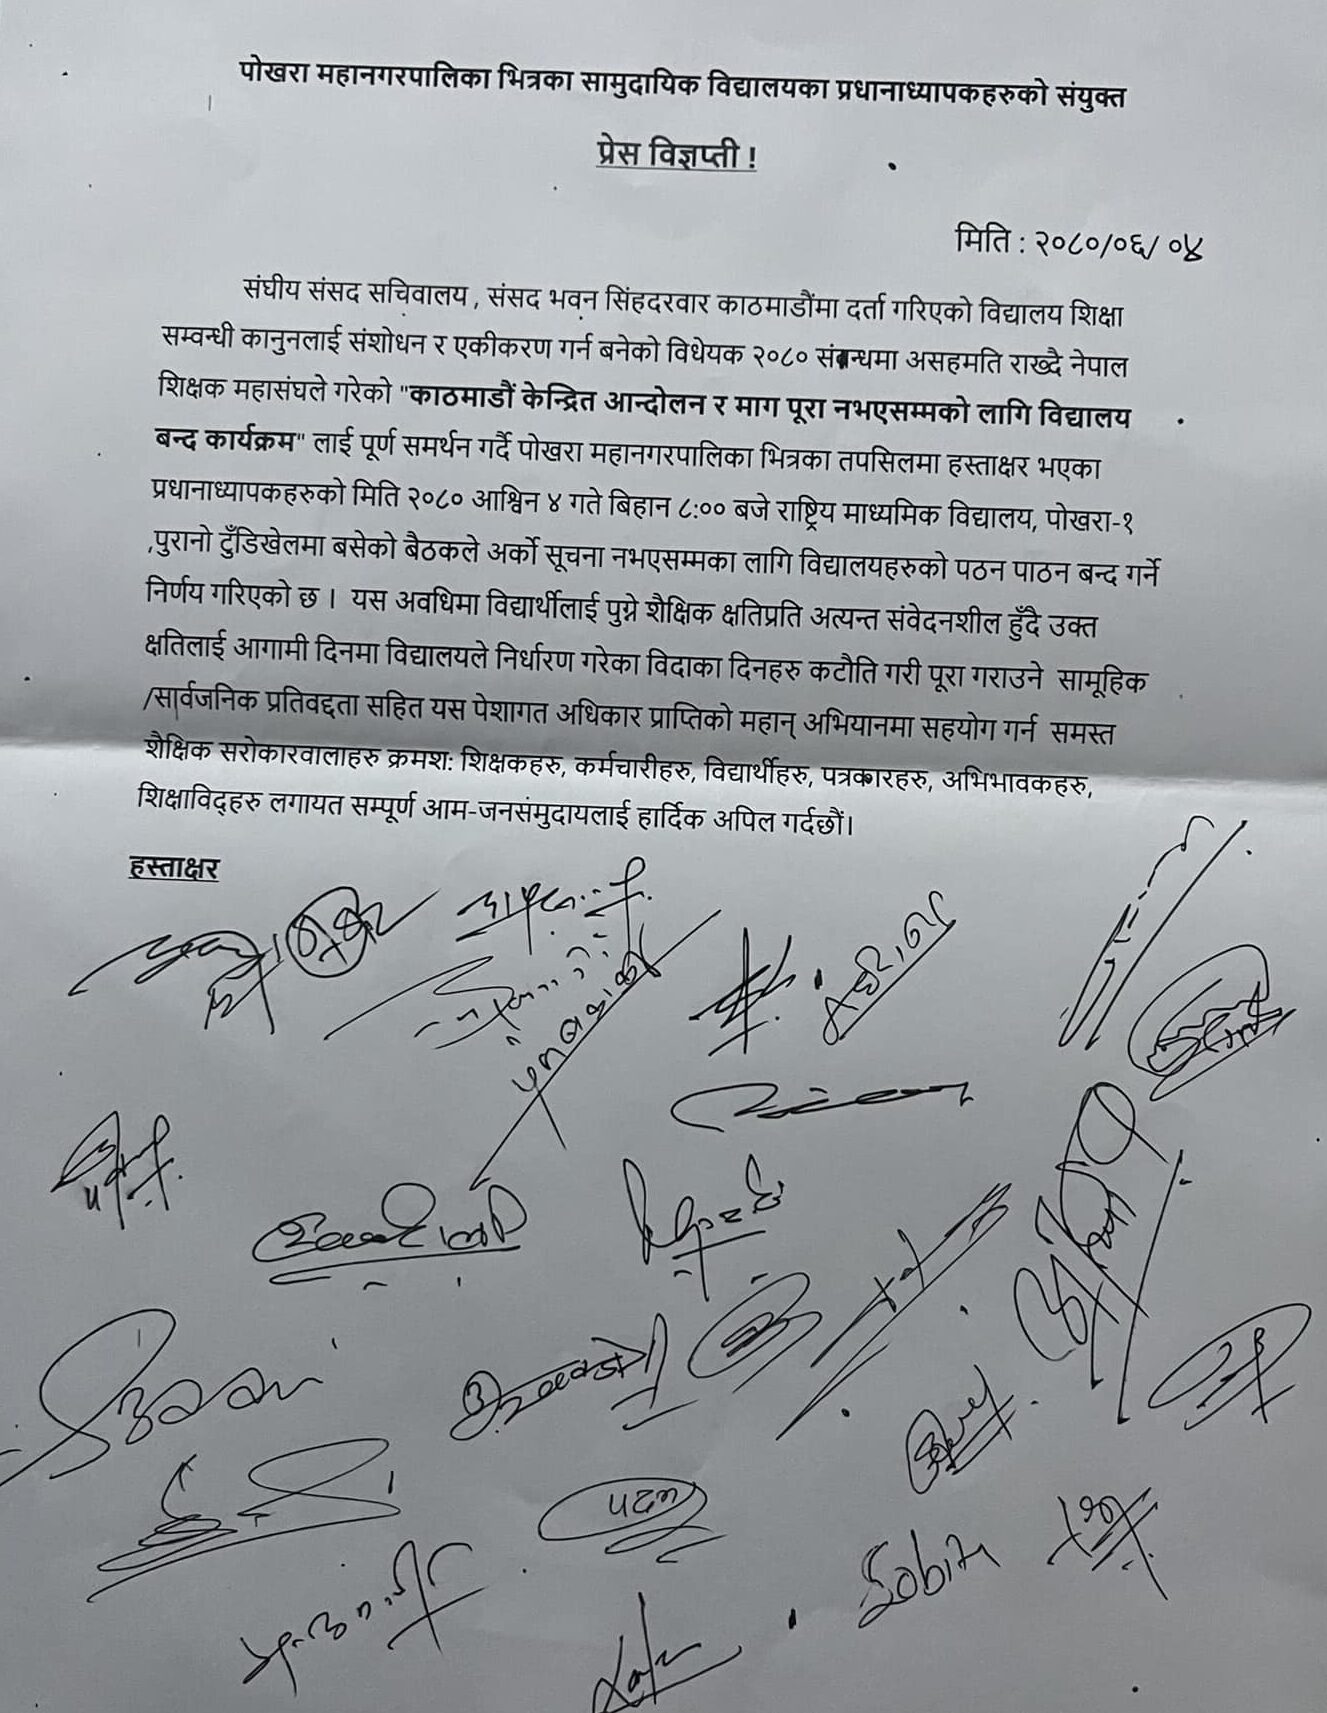 पोखरा महानगरपालिका भित्रका सामुदायिक विद्यालयका प्रधानाध्यापकहरुको संयुक्त
प्रेस विज्ञप्ती !
मिति : २०८०/०६/ ०४
संघीय संसद सचिवालय , संसद भवन सिंहदरवार काठमाडौंमा दर्ता गरिएको विद्यालय शिक्षा
सम्वन्धी कानुनलाई संशोधन र एकीकरण गर्न बनेको विधेयक २०८० संबन्धमा असहमति राख्दै नेपाल
शिक्षक महासंघले गरेको "काठमाडौं केन्द्रित आन्दोलन र माग पूरा नभएसम्मको लागि विद्यालय
बन्द कार्यक्रम" लाई पूर्ण समर्थन गर्दै पोखरा महानगरपालिका भित्रका तपसिलमा हस्ताक्षर भएका
प्रधानाध्यापकहरुको मिति २०८० आश्विन ४ गते बिहान ८:०० बजे राष्ट्रिय माध्यमिक विद्यालय, पोखरा-१
,पुरानो टुँडिखेलमा बसेको बैठकले अर्को सूचना नभएसम्मका लागि विद्यालयहरुको पठन पाठन बन्द गर्ने
निर्णय गरिएको छ । यस अवधिमा विद्यार्थीलाई पुग्ने शैक्षिक क्षतिप्रति अत्यन्त संवेदनशील हुँदै उक्त
क्षतिलाई आगामी दिनमा विद्यालयले निर्धारण गरेका विदाका दिनहरु कटौति गरी पूरा गराउने सामूहिक
/सार्वजनिक प्रतिवद्दता सहित यस पेशागत अधिकार प्राप्तिको महान् अभियानमा सहयोग गर्न समस्त
शैक्षिक सरोकारवालाहरु क्रमश: शिक्षकहरु, कर्मचारीहरु, विद्यार्थीहरु, पत्रकारहरु, अभिभावकहरु,
शिक्षाविद्हरु लगायत सम्पूर्ण आम-जनसंमुदायलाई हार्दिक अपिल गर्दछौं।
हस्ताक्षर
पदम